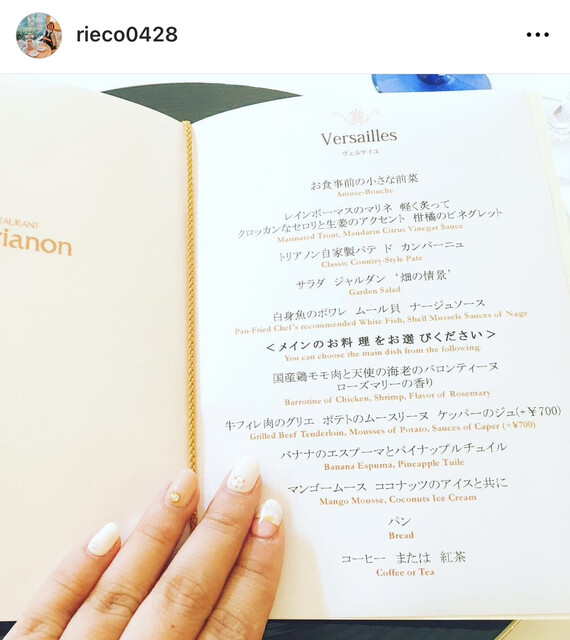 rieco0428
TAURANT
rianon
Versailles
ヴェルサイユ
お食事前の小さな前菜
Amuse-Bouche
レインボーマスのマリネ 軽く炙って
クロッカンなセロリと生姜のアクセント 柑橘のビネグレット
Marinated Trout, Mandarin Citrus Vinegar Sauce
トリアノン自家製パテ ド カンパーニュ
Classic Country-Style Pate
サラダ ジャルダン ‘畑の情景’
Garden Salad
白身魚のポワレ ムール貝 ナージュソース
Pan-Fried Chef's recommended White Fish, Shell Mussels Sauces of Nage
＜メインのお料理をお選びください＞
You can choose the main dish from the following.
国産鶏モモ肉と天使の海老のバロンティーヌ
ローズマリーの香り
Barrotine of Chicken, Shrimp, Flavor of Rosemary
牛フィレ肉のグリエ ポテトのムースリーヌ ケッパーのジュ(+￥700)
Grilled Beef Tenderloin, Mousses of Potato, Sauces of Caper (+￥700)
バナナのエスプーマとパイナップルチュイル
Banana Espuma, Pineapple Tuile
マンゴームース ココナッツのアイスと共に
Mango Mousse, Coconuts Ice Cream
パン
Bread
コーヒー または 紅茶
Coffee or Tea